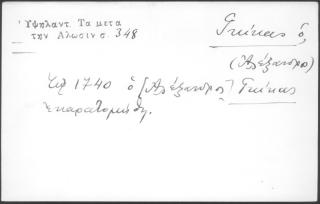 Ὑψηλαντ. Τα μετα
την Αλωσιν σ. 348
Γκίκας ὁ,
(Ἀλέξανδρο)
1740 ὁ [Ἀλέξανδρος] Γκίκας
ἐκαρατομήθη.